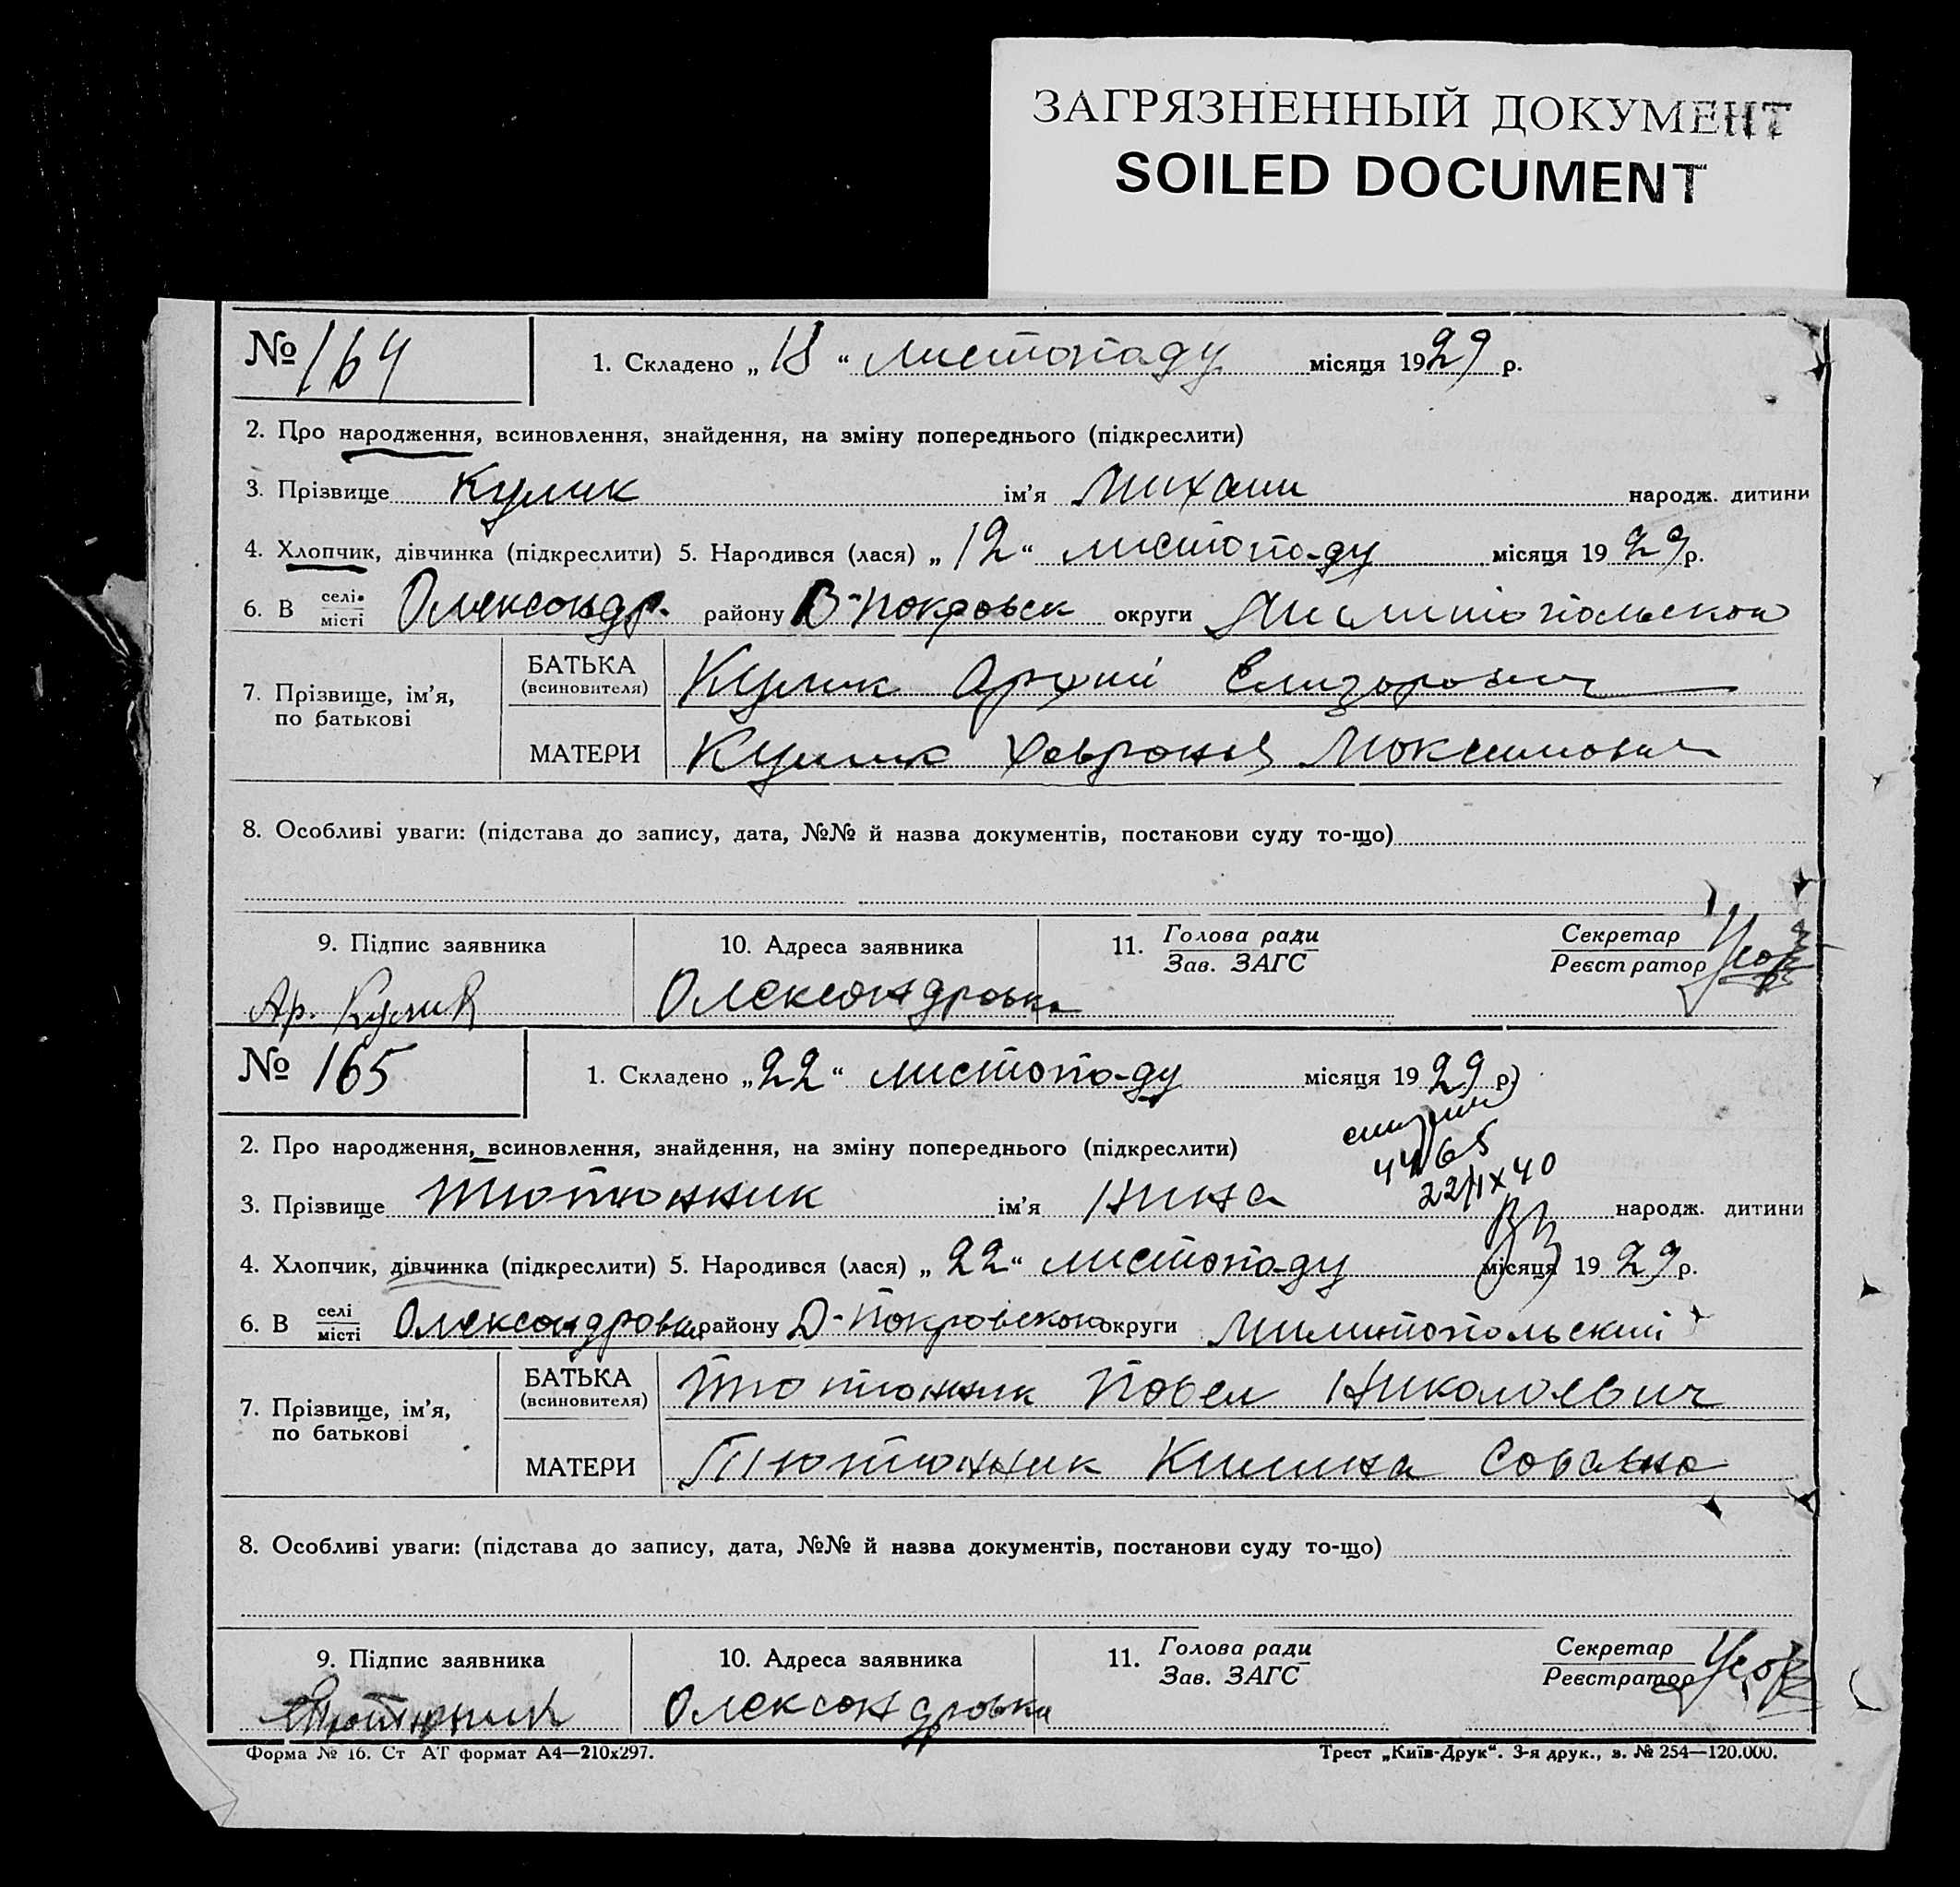 ЗАГРЯЗНЕННЫЙ ДОКУМЕНТ
SOILED DOCUMENT
№ 164 1. Складено „18“ листопаду місяця 1929 р.
2. Про народження, всиновлення, знайдення, на зміну попереднього (підкреслити)
3. Прізвище Кулик ім'я Михаил народж. дитини
4. Хлопчик, дівчинка (підкреслити) 5. Народився (лася) „12“ листопаду місяця 1929 р.
6. В селі місті Олександр. району В-Покровськ округи
7. Прізвище, ім'я, по батькові
БАТЬКА (всиновителя) Кулик Архип Елизарович
МАТЕРИ Кулик Хаврония Максимовн
8. Особливі уваги: (підстава до запису, дата, №№ й назва документів, постанови суду то-що)
9. Підпис заявника 10. Адреса заявника 11. Голова ради Зав. ЗАГС Секретар Реєстратор
Ар. Кулик Олександровка
№ 165 1. Складено „22“ листопаду місяця 1929 р.
2. Про народження, всиновлення, знайдення, на зміну попереднього (підкреслити)
44/65
22/IX 40
3. Прізвище Тютюнник ім'я Нина народж. дитини
4. Хлопчик, дівчинка (підкреслити) 5. Народився (лася) „22“ листопаду місяця 1929 р.
6. В селі місті Олександровка району В-Покровского округи Милитопольский
7. Прізвище, ім'я, по батькові
БАТЬКА (всиновителя) Тютюнник Павел Николаевич
МАТЕРИ Тютюнник Килина
8. Особливі уваги: (підстава до запису, дата, №№ й назва документів, постанови суду то-що)
9. Підпис заявника 10. Адреса заявника 11. Голова ради Зав. ЗАГС Секретар Реєстратор
Тютюнник Олександровка
Форма № 16. Ст АТ формат А4—210х297. Трест „Київ-Друк“. 3-я друк., з. № 254—120.000.